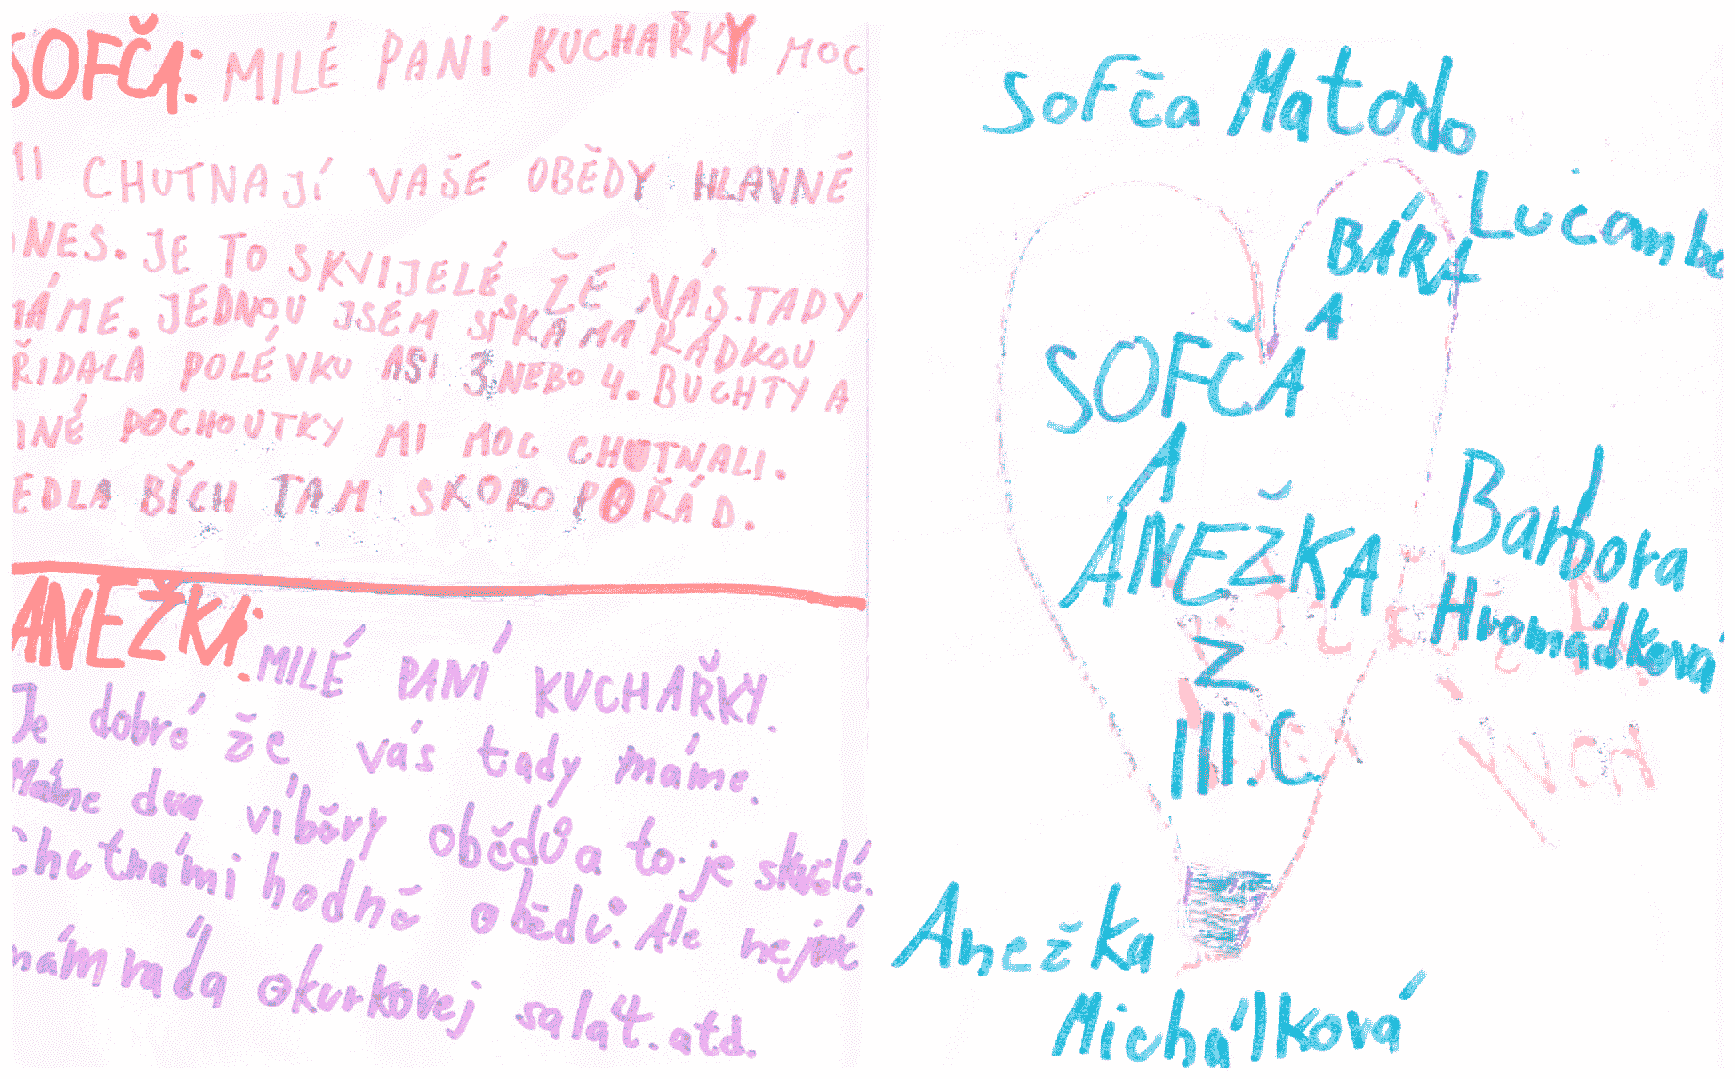 SOFČA: MILÉ PANÍ KUCHAŘKY MOC
MI CHUTNAJÍ VAŠE OBĚDY HLAVNĚ
DNES. JE TO SKVIJELÉ, ŽE VÁS TADY
MÁME. JEDNOU JSEM SI S KAMARÁDKOU
PŘIDALA POLÉVKU ASI 3 NEBO 4. BUCHTY A
JINÉ POCHOUTKY MI MOC CHUTNALI.
JEDLA BĬCH TAM SKORO POŘÁD.
ANEŽKA: MILÉ PANÍ KUCHAŘKY.
Je dobré že vás tady máme.
Máme dva víběry obědů a to je skvělé.
Chutnámi hodně obědů. Ale nejvíc
mám ráda okurkovej salát. atd.
Sofča Matodo
Lucombo
BÁRA
A
SOFČA
A
ANEŽKA
Z
III.C
Barbora
Hromálková
Anežka
Michálková